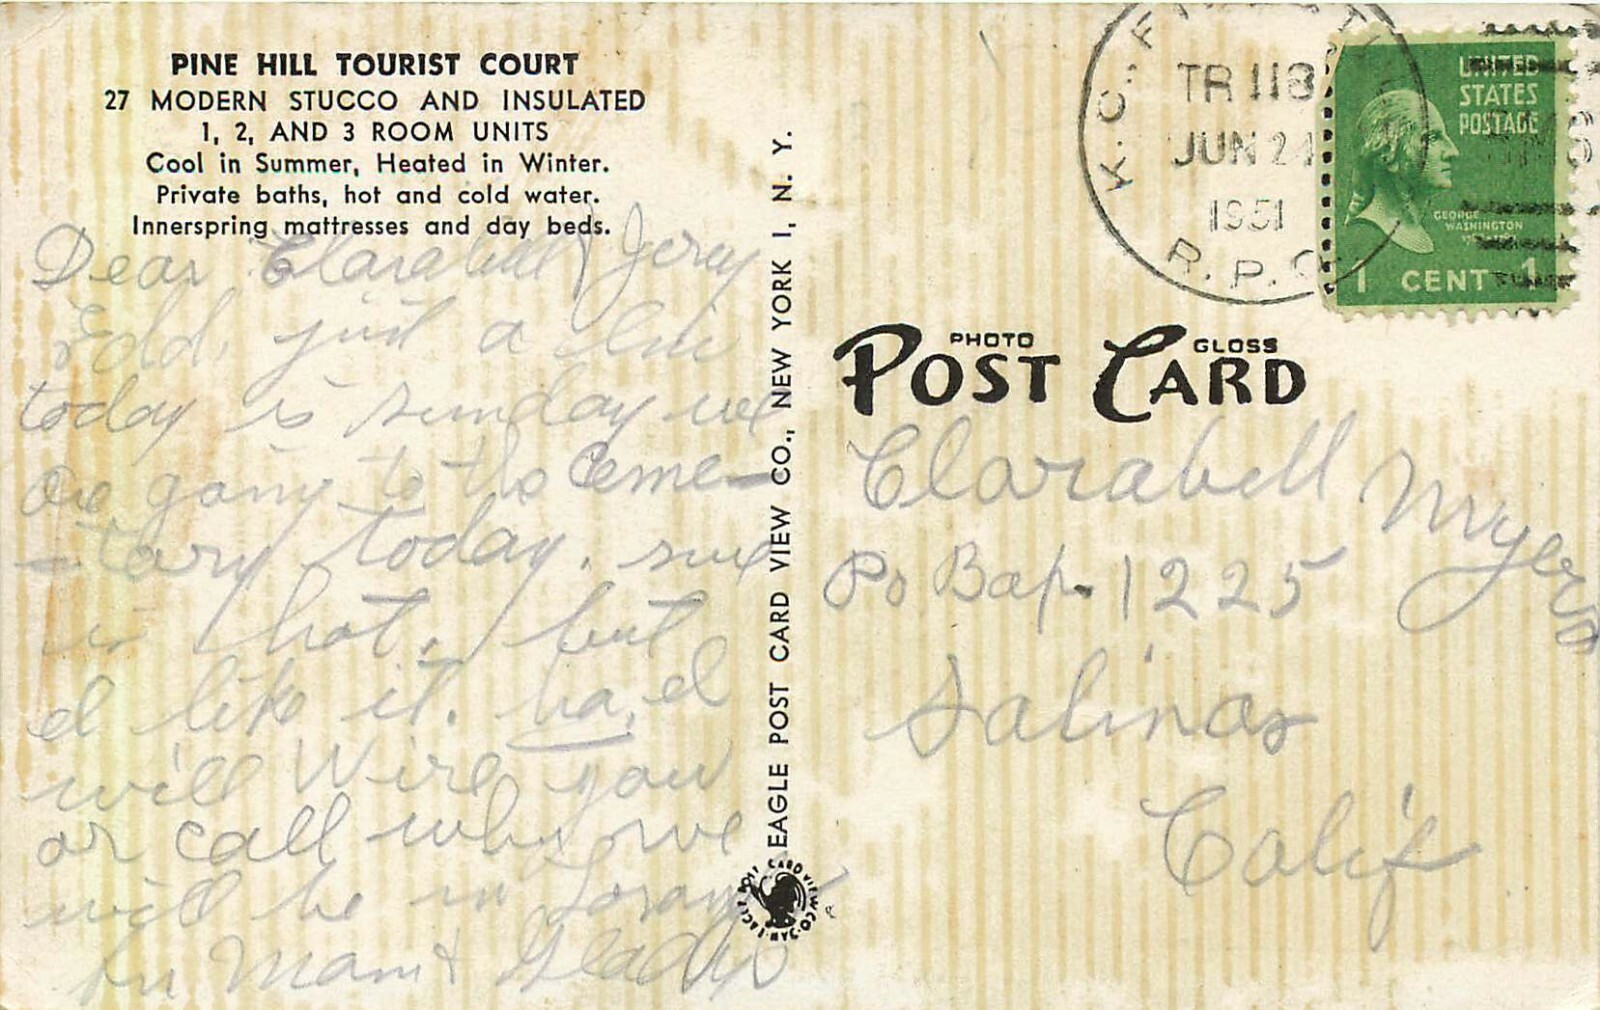 PINE HILL TOURIST COURT
27 MODERN STUCCO AND INSULATED
1, 2, AND 3 ROOM UNITS
Cool in Summer, Heated in Winter.
Private baths, hot and cold water.
Innerspring mattresses and day beds.
Dear Clarabell & Jerry
just a line
today is sunday we
are going to the Ceme-
-tary today. sure
is hot. but
I like it. ha, I
will Wire you
or call when we
will be in
Mom & Gladys
EAGLE POST CARD VIEW CO., NEW YORK 1, N. Y.
K.C.
TR 118
JUN 24
1951
R.P.O.
UNITED
STATES
POSTAGE
GEORGE
WASHINGTON
1 CENT 1
PHOTO GLOSS
POST CARD
Clarabell Myers
Po Box 1225
Salinas
Calif